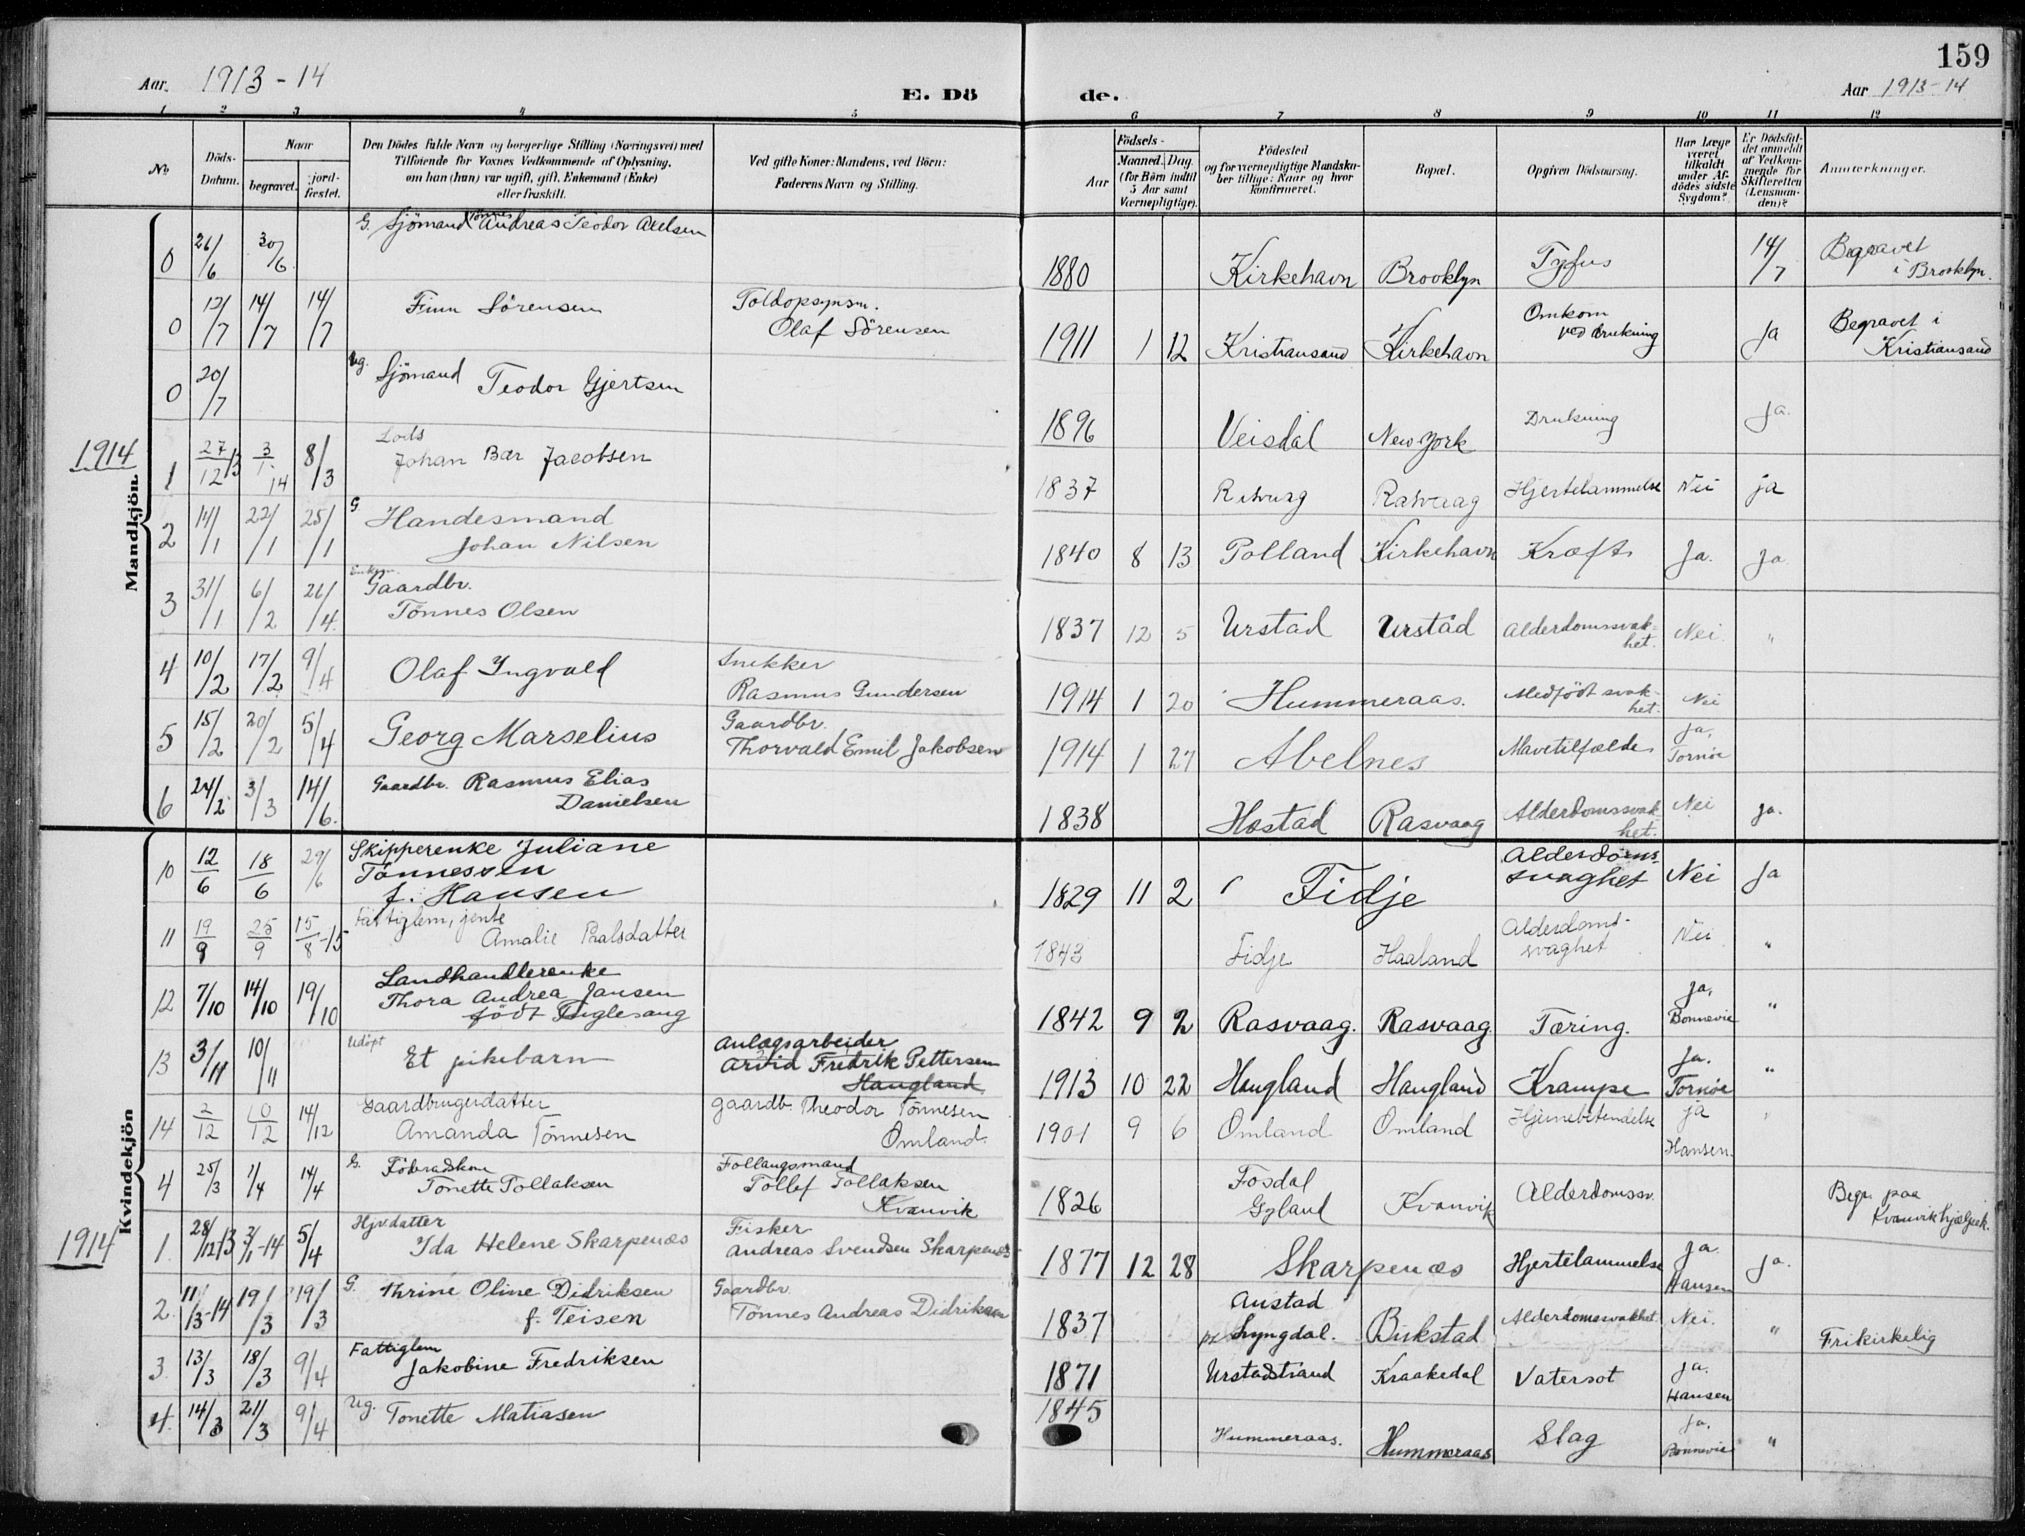 159
Aar. 1913-14
E. Dö
de.
Aar 1913-14
1 2 3 4 5 6 7 8 9 10 11 12
No
Döds-Datum.
Naar
begravet.
jord-fæstet.
Den Dödes fulde Navn og borgerlige Stilling (Næringsvei) med
Tilföiende for Voxnes Vedkommende af Oplysning,
om han (hun) var ugift, gift, Enkemand (Enke)
eller fraskilt.
Ved gifte Koner: Mandens, ved Börn:
Faderens Navn og Stilling.
Födsels-
Aar
Maaned. Dag.
(for Börn indtil
5 Aar samt
Værnepligtige).
Födested
og for værnepligtige Mandska-
ber tillige: Naar og hvor
konfirmeret.
Bopæl.
Opgiven Dödsaarsag.
Har Læge
været
tilkaldt
under Af-
dödes sidste
Sygdom?
Er Dödsfal-
det anmeldt
af Vedkom-
mende for
Skifteretten
(Lensman-
den)?
Anmærkninger.
Mandkjön
0 26/6 30/6 G. Sjömand Tönnes Andreas Teodor Axelsen 1880 Kirkehavn Brooklyn Tyfus 14/7 Begravet
i Brooklyn.
0 12/7 14/7 14/7 Finn Sörensen Toldopsynsm.
Olaf Sörensen 1911 1 12 Kristiansand Kirkehavn Omkom
ved drukning Ja Begravet i
Kristiansand
0 20/7 Ug. Sjömand Teodor Gjertsen 1896 Veisdal New York Drukning Ja.
1914
1 27/12 13 3/1 14 8/3 Lods
Johan Bær Jacobsen 1837 Rasvaag Hjertelammelse Nei ja
2 14/1 22/1 25/1 G. Handesmand
Johan Nilsen 1840 8 13 Polland Kirkehavn Kræft Ja. Ja
3 31/1 6/2 26/4 Enkem.
Gaardbr.
Tönnes Olsen 1837 12 5 Urstad Urstad Alderdomssvak-
het. Nei. "
4 10/2 17/2 9/4 Olaf Ingvald Snekker
Rasmus Gundersen 1914 1 20 Hummeraas. Medfödt svak-
het. Nei
5 15/2 20/2 5/4 Georg Marselius Gaardbr.
Thorvald Emil Jakobsen 1914 1 27 Abelnes Mavetilfælde Ja,
Tornöe
6 24/2 3/3 14/6. Gaardbr. Rasmus Elias
Danielsen 1838 Hostad Rasvaag Alderdomssvak-
het. Nei ja.
Kvindekjön
10 12/6 18/6 29/6 Skipperenke Juliane
Tönnessen
f. Hansen 1829 11 2 Fidje Alderdoms-
svaghet Nei Ja
11 19/9 25/9 15/8-15 Fattiglem, jente
Amalie Paalsdatter 1843 Fidje Haaland Alderdoms-
svaghet Nei "
12 7/10 14/10 19/10 Landhandlerenke
Thora Andrea Jansen
födt Fuglesang 1842 9 2 Rasvaag. Rasvaag Tæring. Ja,
Bonnevie "
13 3/11 10/11 Udöpt
Et pikebarn Anlægsarbeider
Arvid Fredrik Pettersen
Haugland 1913 10 22 Haugland Haugland Krampe Ja.
Tornöe "
14 2/12 10/12 14/12 Gaardbrugerdatter
Amanda Tönnesen gaardb. Theodor Tönnesen
Omland. 1901 9 6 Omland Omland Hjernebetendelse ja
Hansen. "
4 25/3 1/4 14/4 G. Föderaadskone
Tonette Tollaksen Follaugsmand
Tollef Tollaksen
Kvanvik 1826 Fosdal
Gyland Kvanvik Alderdomssv. Begr. paa
Kvanvik hjælpek.
1914
1. 28/12 13 3/1-14 5/4 Hjv datter
Ida Helene Skarpenæs Fisker
Andreas Svendsen Skarpenæs 1877 12 28 Skarpenæs Hjertelammelse Ja.
Hansen ja.
2. 11/3-14 19/3 19/3 G. Thrine Oline Didriksen
f. Teisen Gaardbr.
Tönnes Andreas Didriksen 1837 Austad
pr Lyngdal. Birkstad Alderdomssvakhet. Nei. " Frikirkelig
3. 13/3 18/3 9/4 Fattiglem
Jakobine Fredriksen 1871 Urstadstrand Kraakedal Vatersot ja.
Hansen
4. 14/3 21/3 9/4 Ug. Tonette Matiasen 1845 Hummeraas. Hummeraas Slag Ja.
Bonnevie "